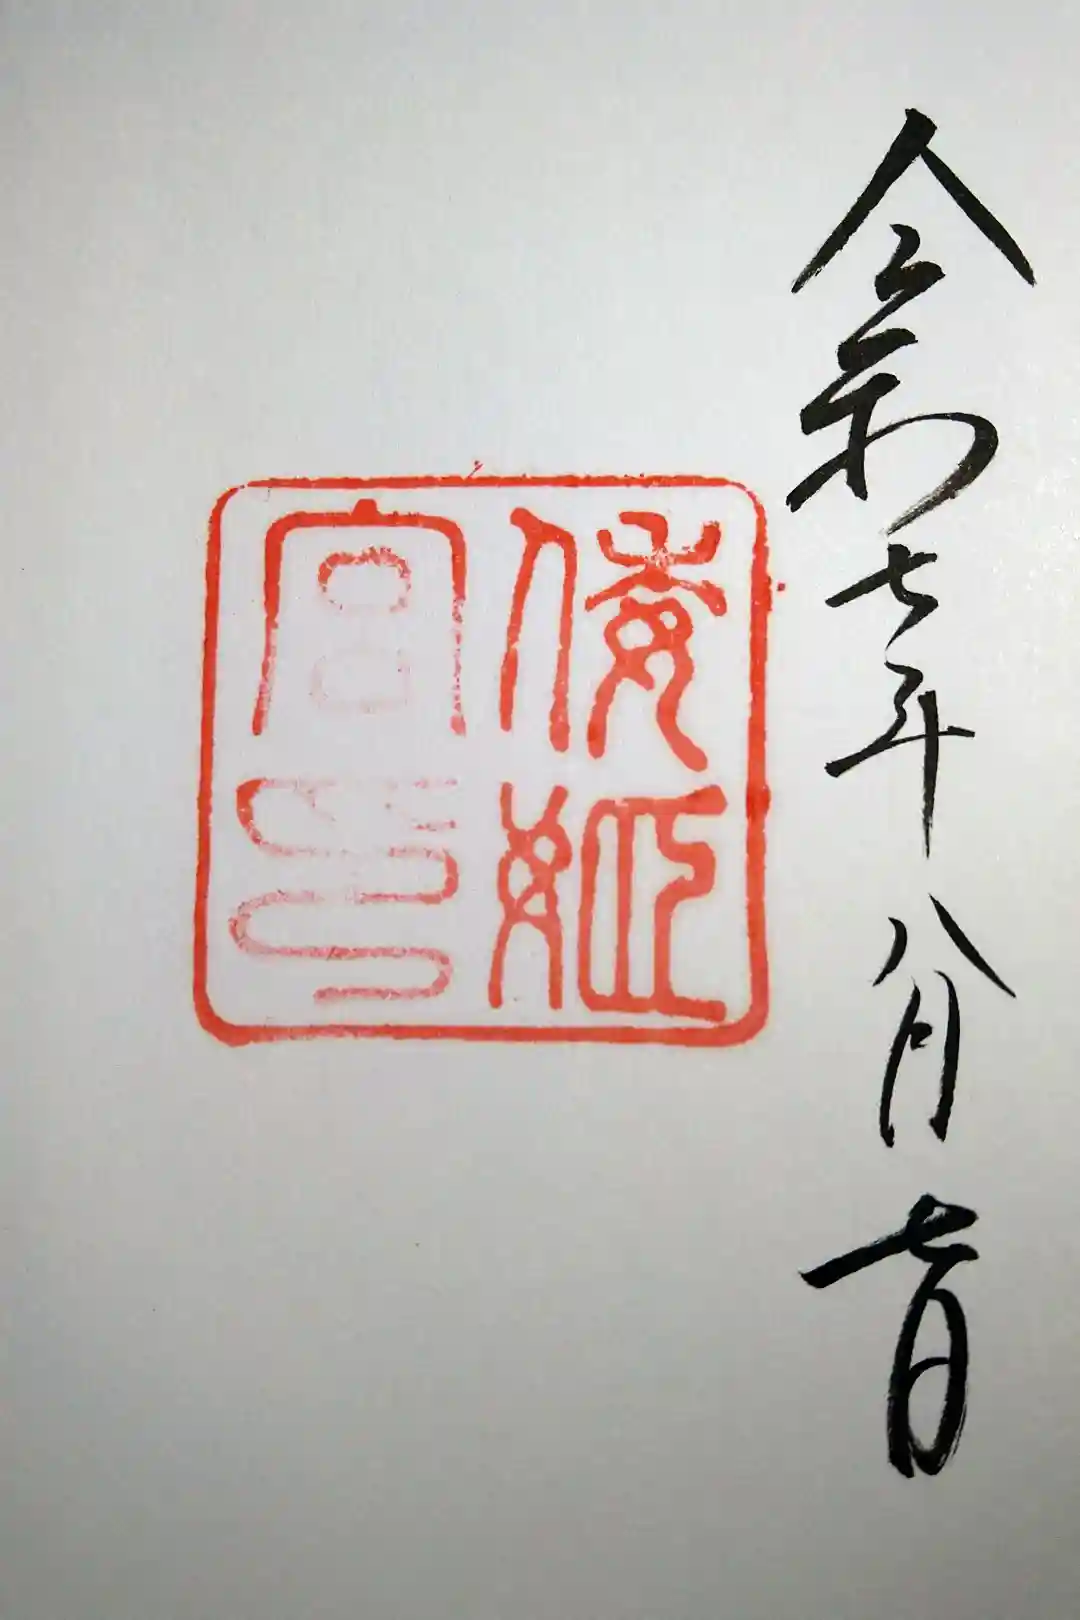 令和七年八月七日
倭姫
宮印